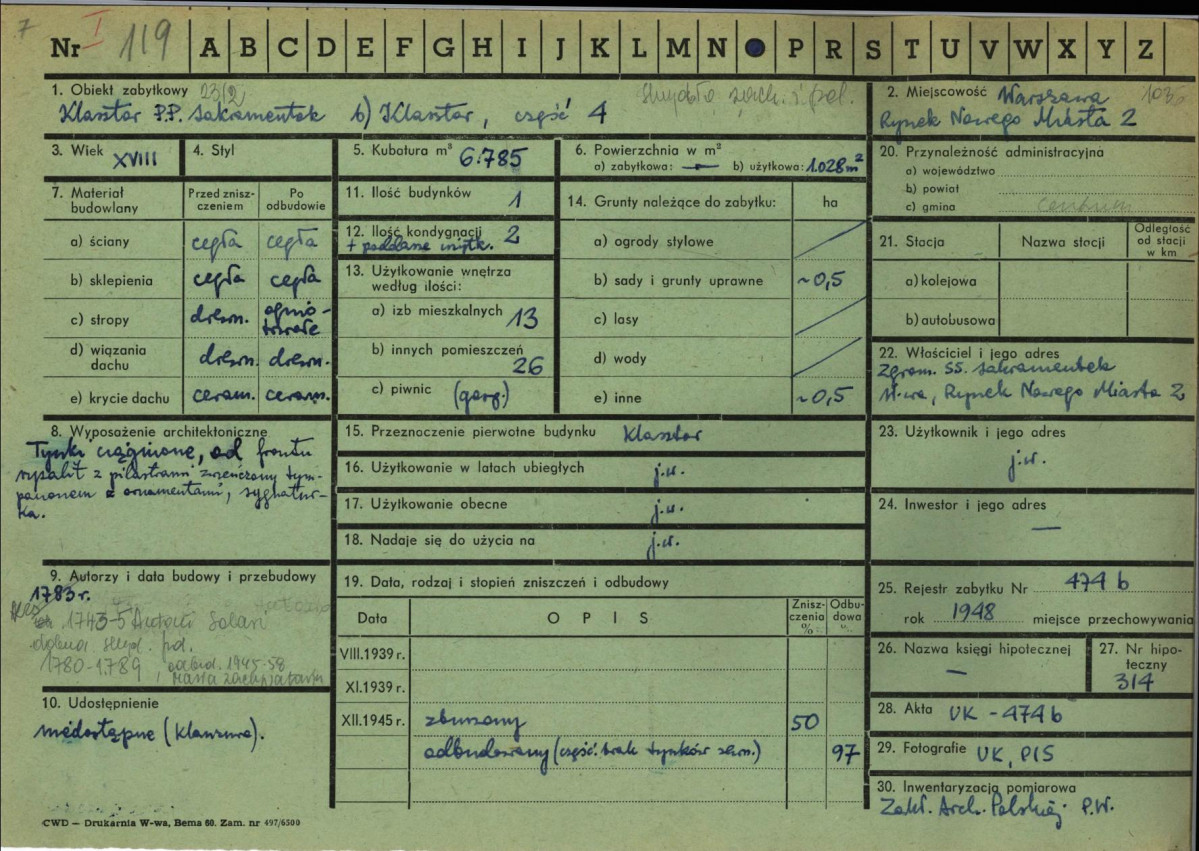 7
Nr I 119 A B C D E F G H I J K L M N P R S T U V W X Y Z
1. Obiekt zabytkowy 23/2 Skrzydło zach. i poł.
Klasztor P.P. Sakramentek b) Klasztor, część 4
2. Miejscowość Warszawa 1036
Rynek Nowego Miasta 2
3. Wiek XVIII
4. Styl
5. Kubatura m³ 6.785
6. Powierzchnia w m²
a) zabytkowa: — b) użytkowa: 1.028 m²
7. Materiał budowlany
Przed znisz-
czeniem
Po
odbudowie
a) ściany cegła cegła
b) sklepienia cegła cegła
c) stropy drewn. ognio-
trwałe
d) wiązania
dachu drewn. drewn.
e) krycie dachu ceram. ceram.
8. Wyposażenie architektoniczne
Tynki ciągnione, od frontu
ryzalit z pilastrami zwieńczony tym-
panonem z ornamentami, sygnatur-
ka.
9. Autorzy i data budowy i przebudowy
1783 r.
1743-5 Antoni Solari
dobud. skrzyd. pd.
1780-1789, odbud. 1945-58
10. Udostępnienie
niedostępne (klauzura).
11. Ilość budynków 1
12. Ilość kondygnacji 2
+ poddasze użytk.
13. Użytkowanie wnętrza
według ilości:
a) izb mieszkalnych 13
b) innych pomieszczeń
26
c) piwnic (gosp.)
14. Grunty należące do zabytku: ha
a) ogrody stylowe
b) sady i grunty uprawne ~0,5
c) lasy
d) wody
e) inne ~0,5
15. Przeznaczenie pierwotne budynku klasztor
16. Użytkowanie w latach ubiegłych j.w.
17. Użytkowanie obecne j.w.
18. Nadaje się do użycia na j.w.
19. Data, rodzaj i stopień zniszczeń i odbudowy
Data O P I S Znisz-
czenia
% Odbu-
dowa
%
VIII.1939 r.
XI.1939 r.
XII.1945 r. zburzony 50
odbudowany (część. brak tynków zewn.) 97
20. Przynależność administracyjna
a) województwo
b) powiat
c) gmina Centrum
21. Stacja Nazwa stacji Odległość
od stacji
w km
a) kolejowa
b) autobusowa
22. Właściciel i jego adres
Zgrom. SS. Sakramentek
W-wa, Rynek Nowego Miasta 2
23. Użytkownik i jego adres
j.w.
24. Inwestor i jego adres
—
25. Rejestr zabytku Nr 474 b
rok 1948 miejsce przechowywania
26. Nazwa księgi hipotecznej
—
27. Nr hipo-
teczny
314
28. Akta UK - 474 b
29. Fotografie UK, PIS
30. Inwentaryzacja pomiarowa
Zakł. Arch. Polskiej P.W.
CWD — Drukarnia W-wa, Bema 60. Zam. nr 497/6500